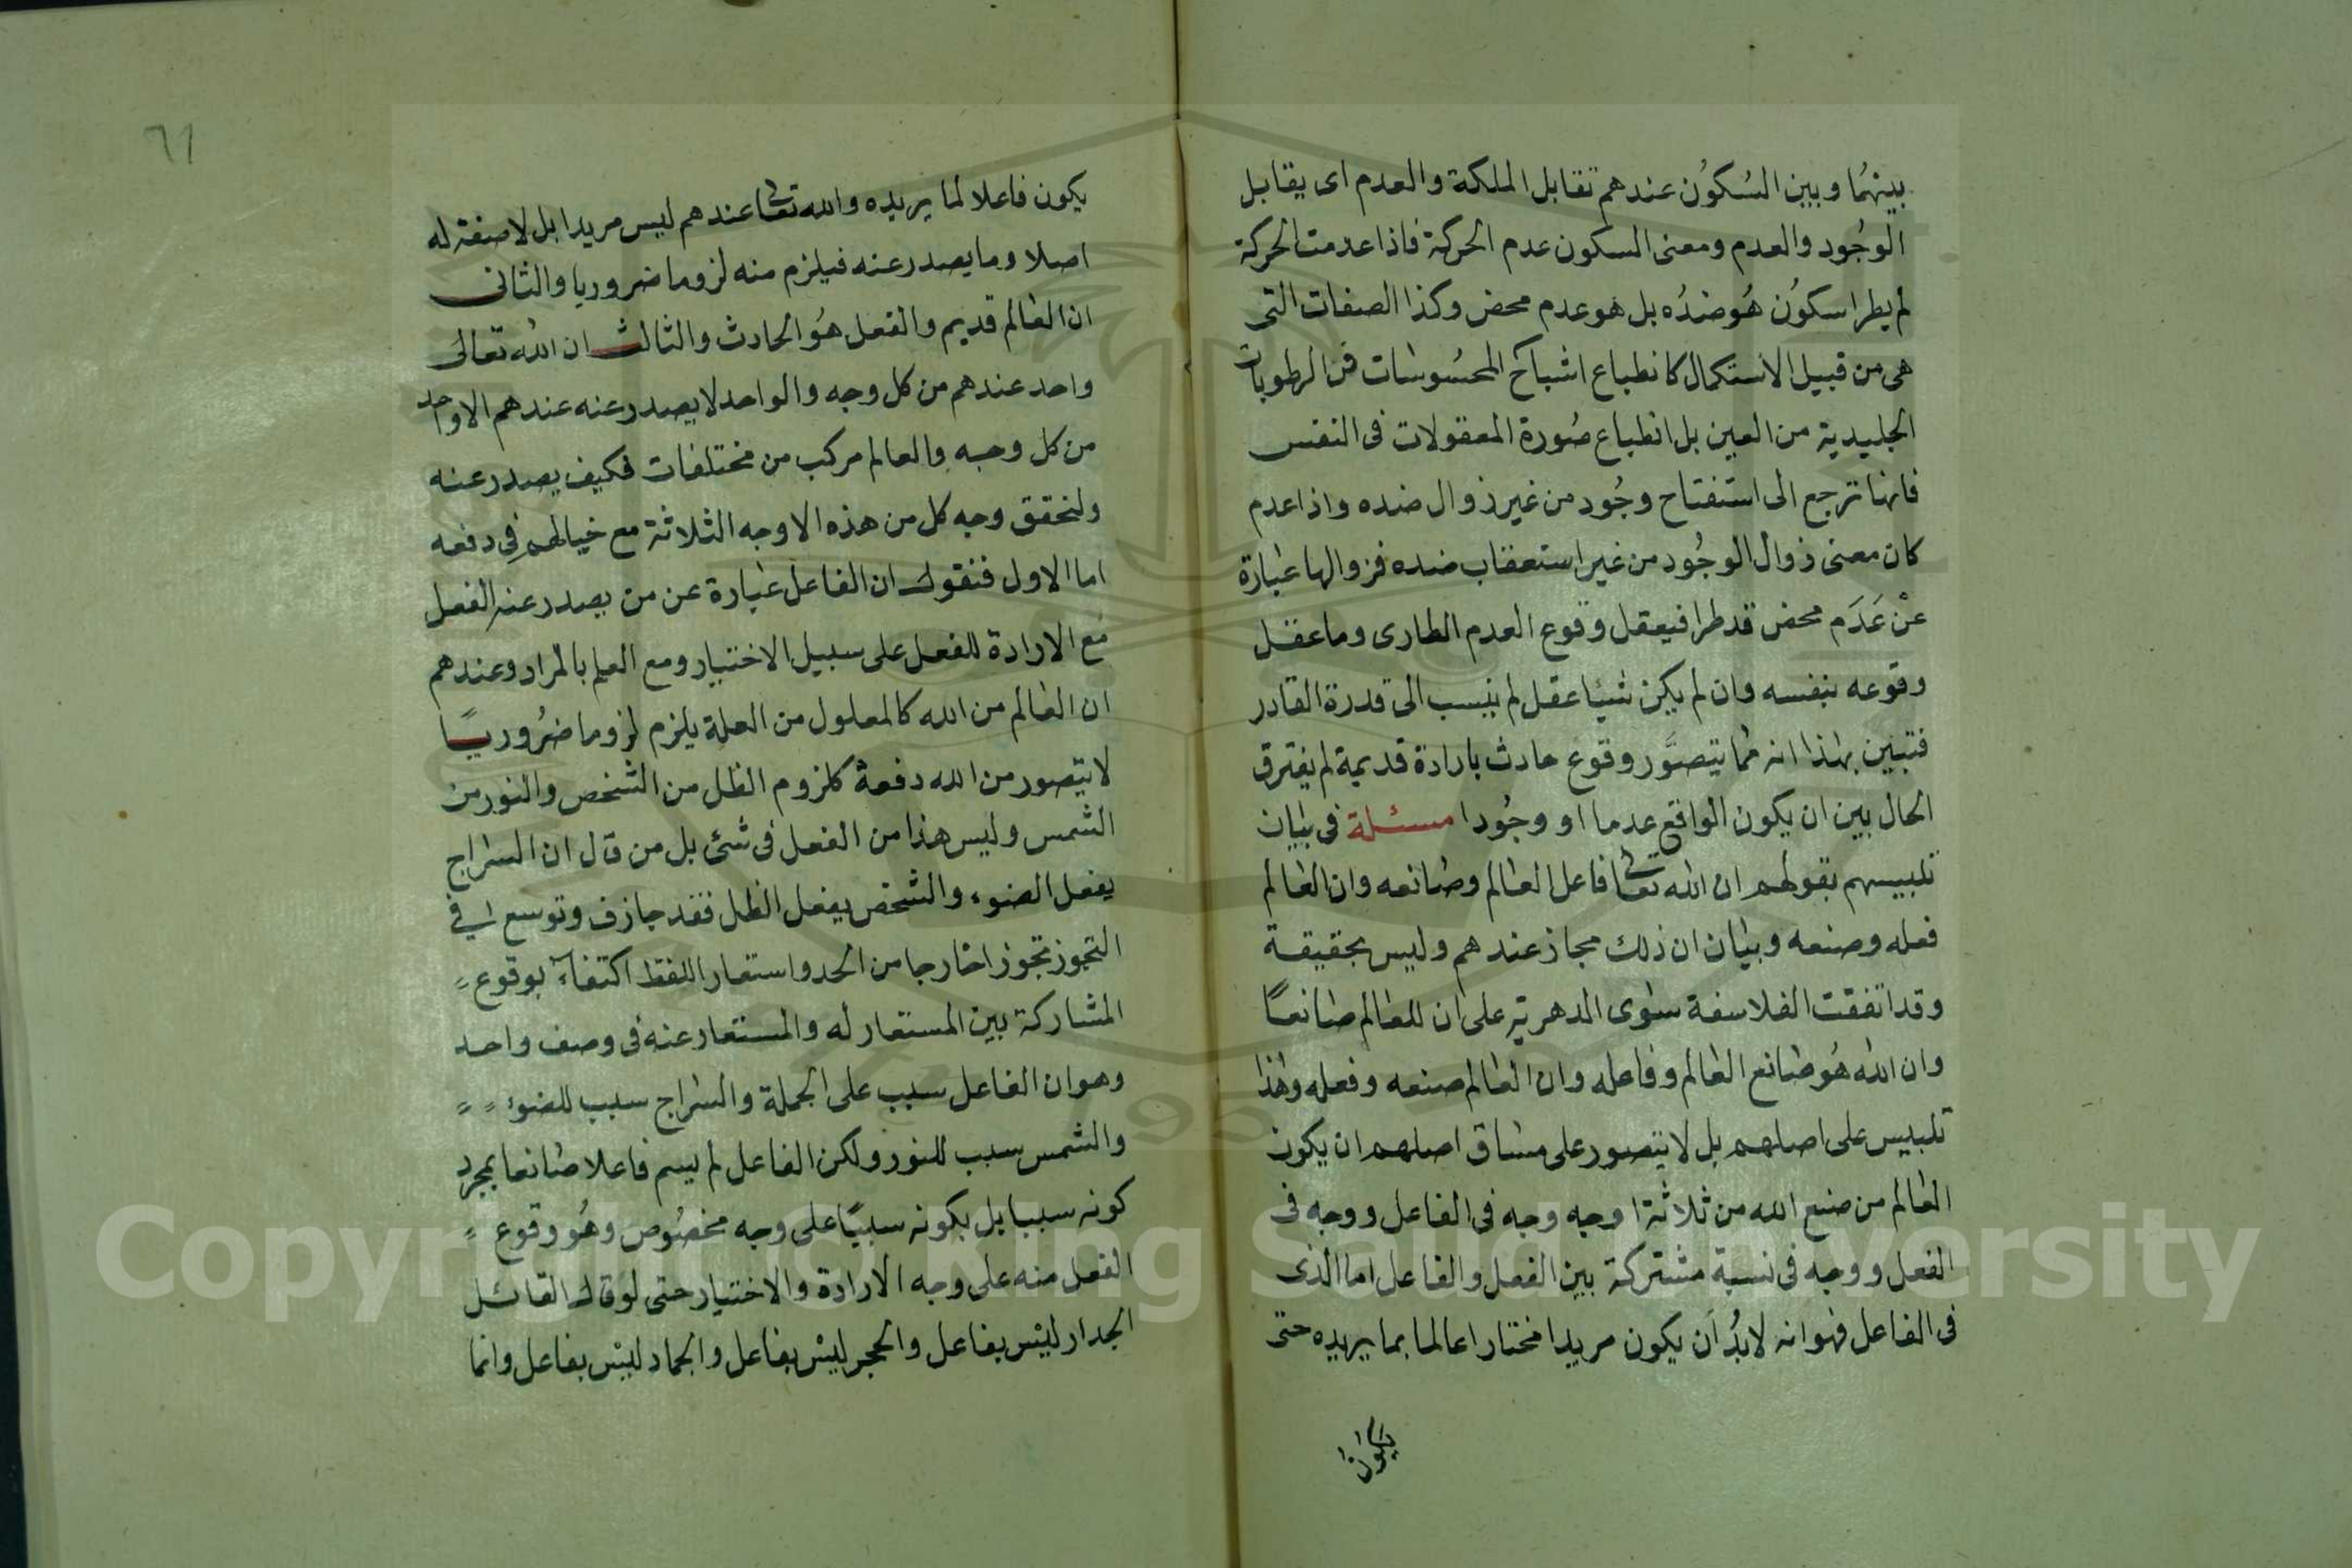 بينهما وبين السكون عندهم تقابل الملكة والعدم اى يقابل
الوجود والعدم ومعنى السكون عدم الحركة فاذا عدمت الحركة
لم يطرا سكون هو ضده بل هو عدم محض وكذا الصفات التى
هى من قبيل الاستكمال كانطباع اشباح المحسوسات فى الرطوبات
الجليدية من العين بل انطباع صورة المعقولات فى النفس
فانها ترجع الى استفتاح وجود من غير زوال ضده واذا عدم
كان معنى زوال الوجود من غير استعقاب ضده فزوالها عبارة
عن عدم محض قد طرا فيعقل وقوع العدم الطارى وما عقل
وقوعه بنفسه وان لم يكن شيئا عقل لم ينسب الى قدرة القادر
فتبين بهذا انه مما يتصور وقوع حادث بارادة قديمة لم يفترق
الحال بين ان يكون الواقع عدما او وجودا مسئلة فى بيان
تلبيسهم بقولهم ان الله تعالى فاعل العالم وصانعه وان العالم
فعله وصنعه وبيان ان ذلك مجاز عندهم وليس بحقيقة
وقد اتفقت الفلاسفة سوى الدهرية على ان للعالم صانعًا
وان الله هو صانع العالم وفاعله وان العالم صنعه وفعله وهذا
تلبيس على اصلهم بل لا يتصور على مساق اصلهم ان يكون
العالم من صنع الله من ثلاثة اوجه وجه فى الفاعل ووجه فى
الفعل ووجه فى نسبة مشتركة بين الفعل والفاعل اما الذى
فى الفاعل فهو انه لابد أن يكون مريدا مختارا عالما بما يريده حتى
يكون
٦١
يكون فاعلا لما يريده والله تعالى عندهم ليس مريدا بل لا صفة له
اصلا وما يصدر عنه فيلزم منه لزوما ضروريا والثانى
ان العالم قديم والفعل هو الحادث والثالث ان الله تعالى
واحد عندهم من كل وجه والواحد لا يصدر عنه عندهم الا واحد
من كل وجه والعالم مركب من مختلفات فكيف يصدر عنه
ولنحقق وجه كل من هذه الاوجه الثلاثة مع خيالهم فى دفعه
اما الاول فنقول ان الفاعل عبارة عن من يصدر عنه الفعل
مع الارادة للفعل على سبيل الاختيار ومع العلم بالمراد وعندهم
ان العالم من الله كالمعلول من العلة يلزم لزوما ضروريًا
لا يتصور من الله دفعة كلزوم الظل من الشخص والنور من
الشمس وليس هذا من الفعل فى شئ بل من قال ان السراج
يفعل الضوء والشخص يفعل الظل فقد جازف وتوسع فى
التجوز تجوزا خارجا من الحد واستعار اللفظ اكتفاءً بوقوع
المشاركة بين المستعار له والمستعار عنه فى وصف واحد
وهو ان الفاعل سبب على الجملة والسراج سبب للضوء
والشمس سبب للنور ولكن الفاعل لم يسم فاعلا صانعا بمجرد
كونه سببا بل بكونه سببًا على وجه مخصوص وهو وقوع
الفعل منه على وجه الارادة والاختيار حتى لو قال القائل
الجدار ليس بفاعل والحجر ليس بفاعل والجماد ليس بفاعل وانما
Copyright © King Saud University